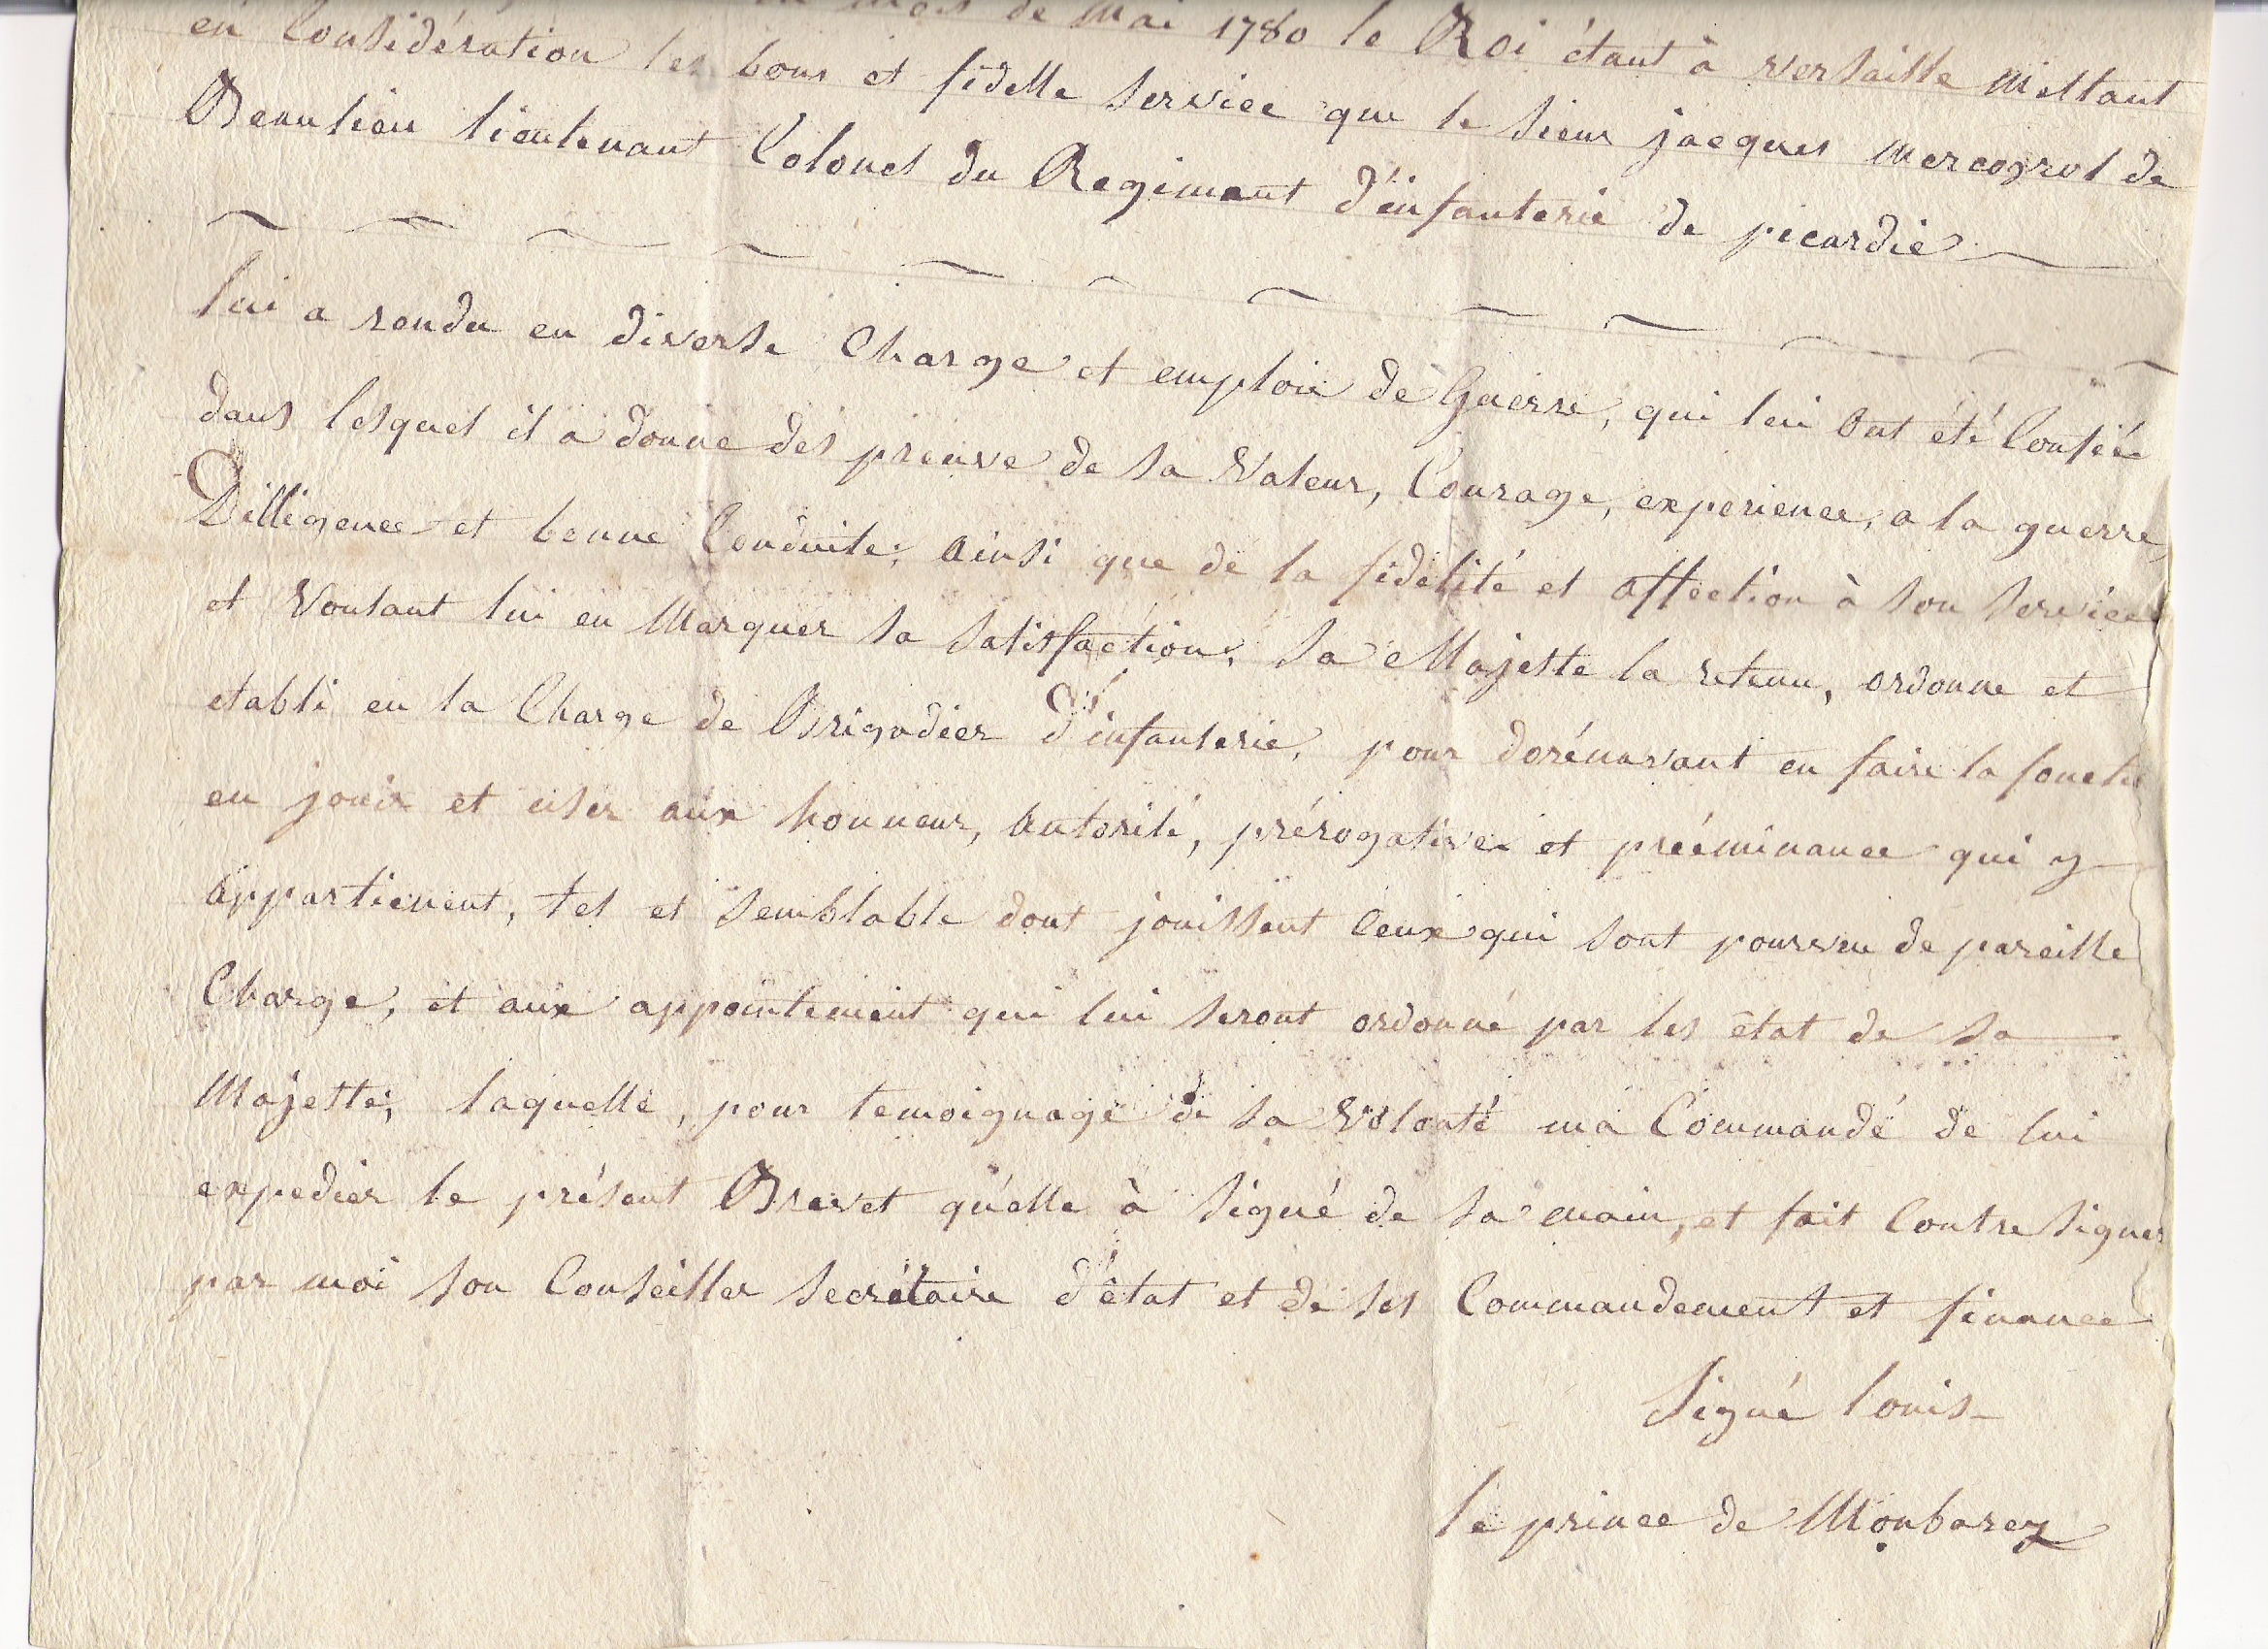 mois de Mai 1780 le Roi étant à versaille Mettant
en Considération les bons et fidelle service que le sieur jacques Mercoyrol de
Beaulieu lieutenant Colonel du Regimant d'infanterie de picardie
lui a rendu en diverse Charge et emploie de Guerre, qui lui Ont été Confiée
dans lesquel il a donne des preuve de sa Valeur, Courage, experience, a la guerre,
Dilligence et bonne Conduite; Ainsi que de la fidélité et Affection à son service
et Voulant lui en Marquer sa satisfaction; sa Majeste la retenu, ordonne et
etabli en la Charge de Brigadier d'infanterie, pour dorénavant en faire la fonction
en jouir et user aux honneur, Autorité, prérogative et prééminance qui y
Appartienent, tel et semblable dont jouissent Ceux qui sont pourvu de pareille
Charge, et aux appointement qui lui seront ordonné par les état de sa
Majesté; laquelle, pour temoignage de sa Volonté ma Commandé de lui
expedier le présent Brevet qu'elle à signé de sa main, et fait Contre signer
par moi son Conseiller secrétaire d'état et de ses Commandement et finance
signé louis
le prince de Monbarey